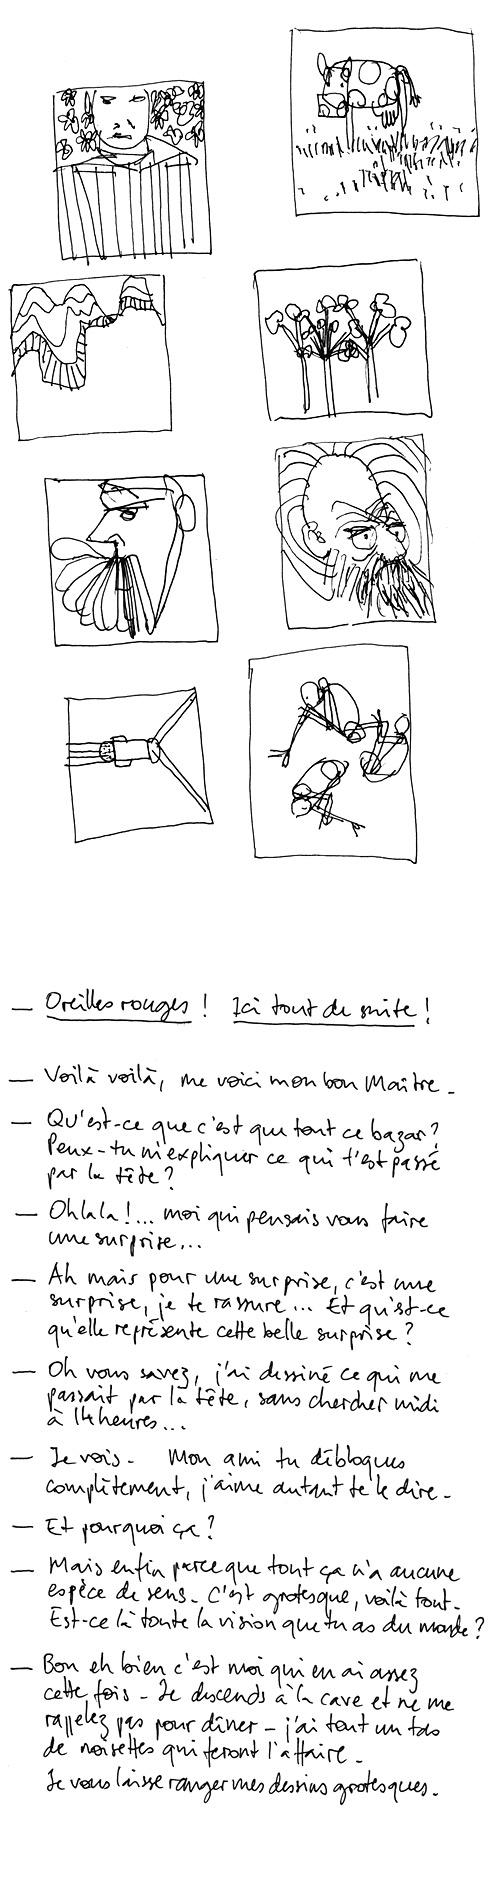 — Oreilles rouges ! Ici tout de suite !
— Voilà voilà, me voici mon bon Maître -
— Qu'est-ce que c'est que tout ce bazar?
Peux-tu m'expliquer ce qui t'est passé
par la tête?
— Ohlala!... moi qui pensais vous faire
une surprise...
— Ah mais pour une surprise, c'est une
surprise, je te rassure... Et qu'est-ce
qu'elle représente cette belle surprise?
— Oh vous savez, j'ai dessiné ce qui me
passait par la tête, sans chercher midi
à 14 heures...
— Je vois - Mon ami tu débloques
complètement, j'aime autant te le dire -
— Et pourquoi ça?
— Mais enfin parce que tout ça n'a aucune
espèce de sens - C'est grotesque, voilà tout -
Est-ce là toute la vision que tu as du monde?
— Bon eh bien c'est moi qui en ai assez
cette fois - Je descends à la cave et ne me
rappelez pas pour dîner - j'ai tout un tas
de noisettes qui feront l'affaire -
Je vous laisse ranger mes dessins grotesques -